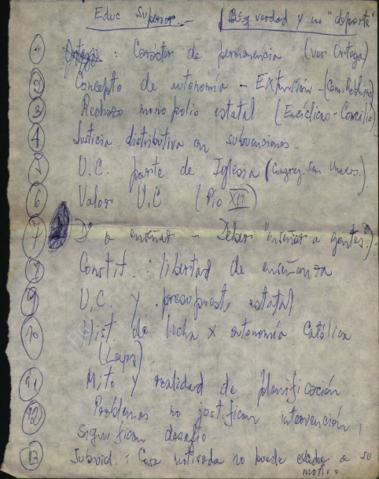 Educ Superior. (Búsq verdad y no "deporte"
1 : Caracter de permanencia (ver Ortega)
2 Concepto de autonomía - Extensión -
3 Rechazo monopolio estatal (Encíclica - Concilio
4 Justicia distributiva en subvenciones.
5 U.C. parte de Iglesia (Congreg. San
6 Valor U.C (Pío XII)
7 D. a enseñar - Deber "enseñar a gentes".
8 Constit. : libertad de enseñanza
9 U.C. y presupuest, estatal
10 Hist de lucha x autonomía Católica
(Leyes)
11 Mito y realidad de planificación
12 Problemas no justifican intervención,
significan desafío
13 Subsid. : Cosa no puede a su